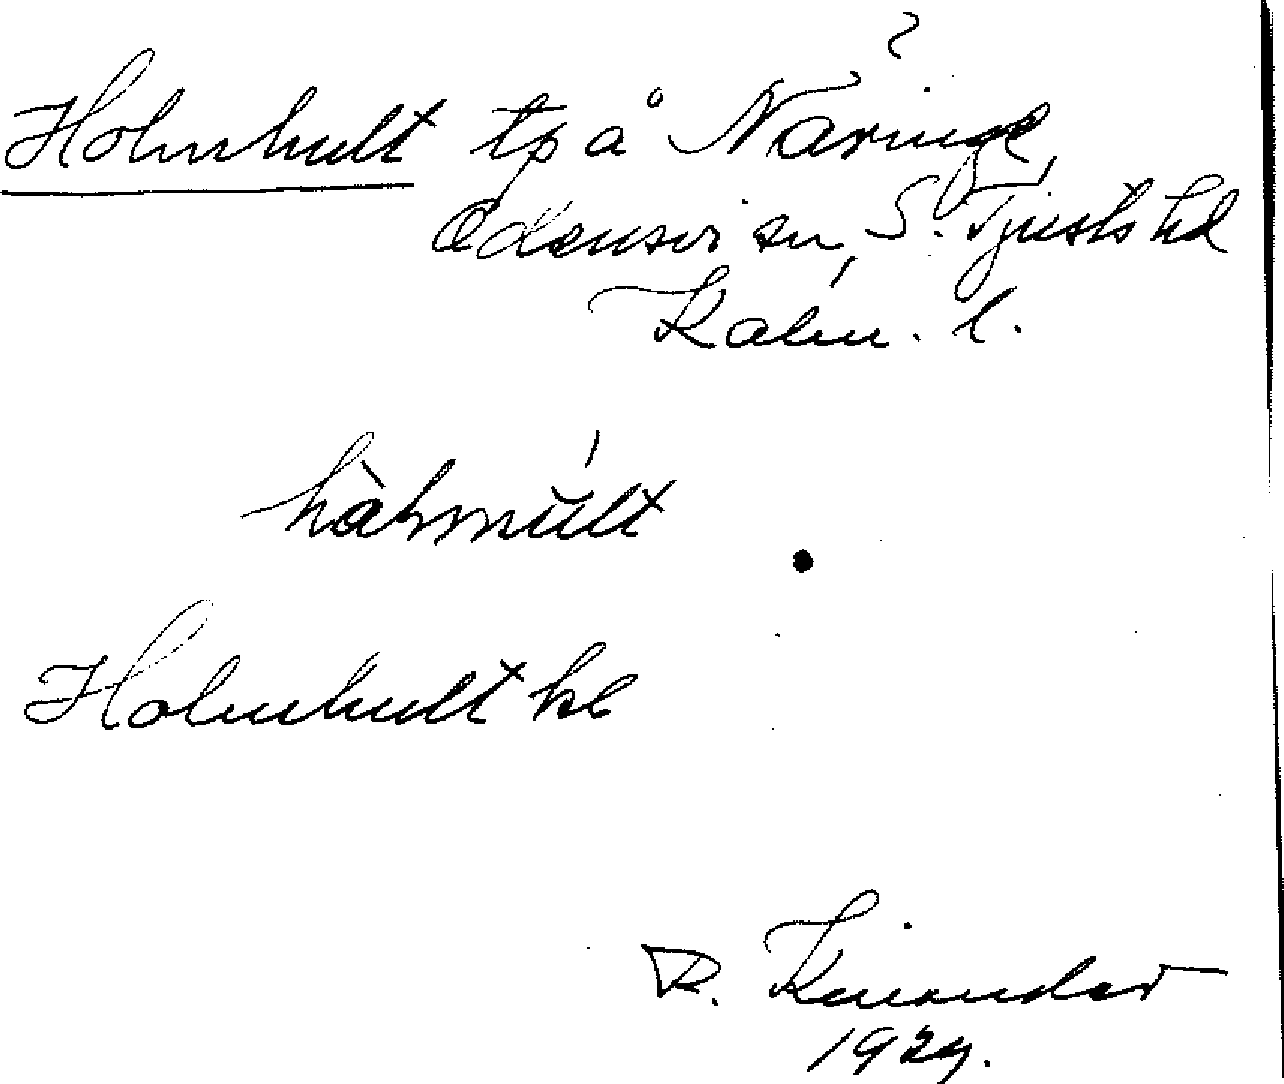 ?
Holmhult tp å Näringe,
Odensvi sn, S. Tjusts hd
Kalm. l.
hàlmult
Holmhult kl
R. Kinander
1929.